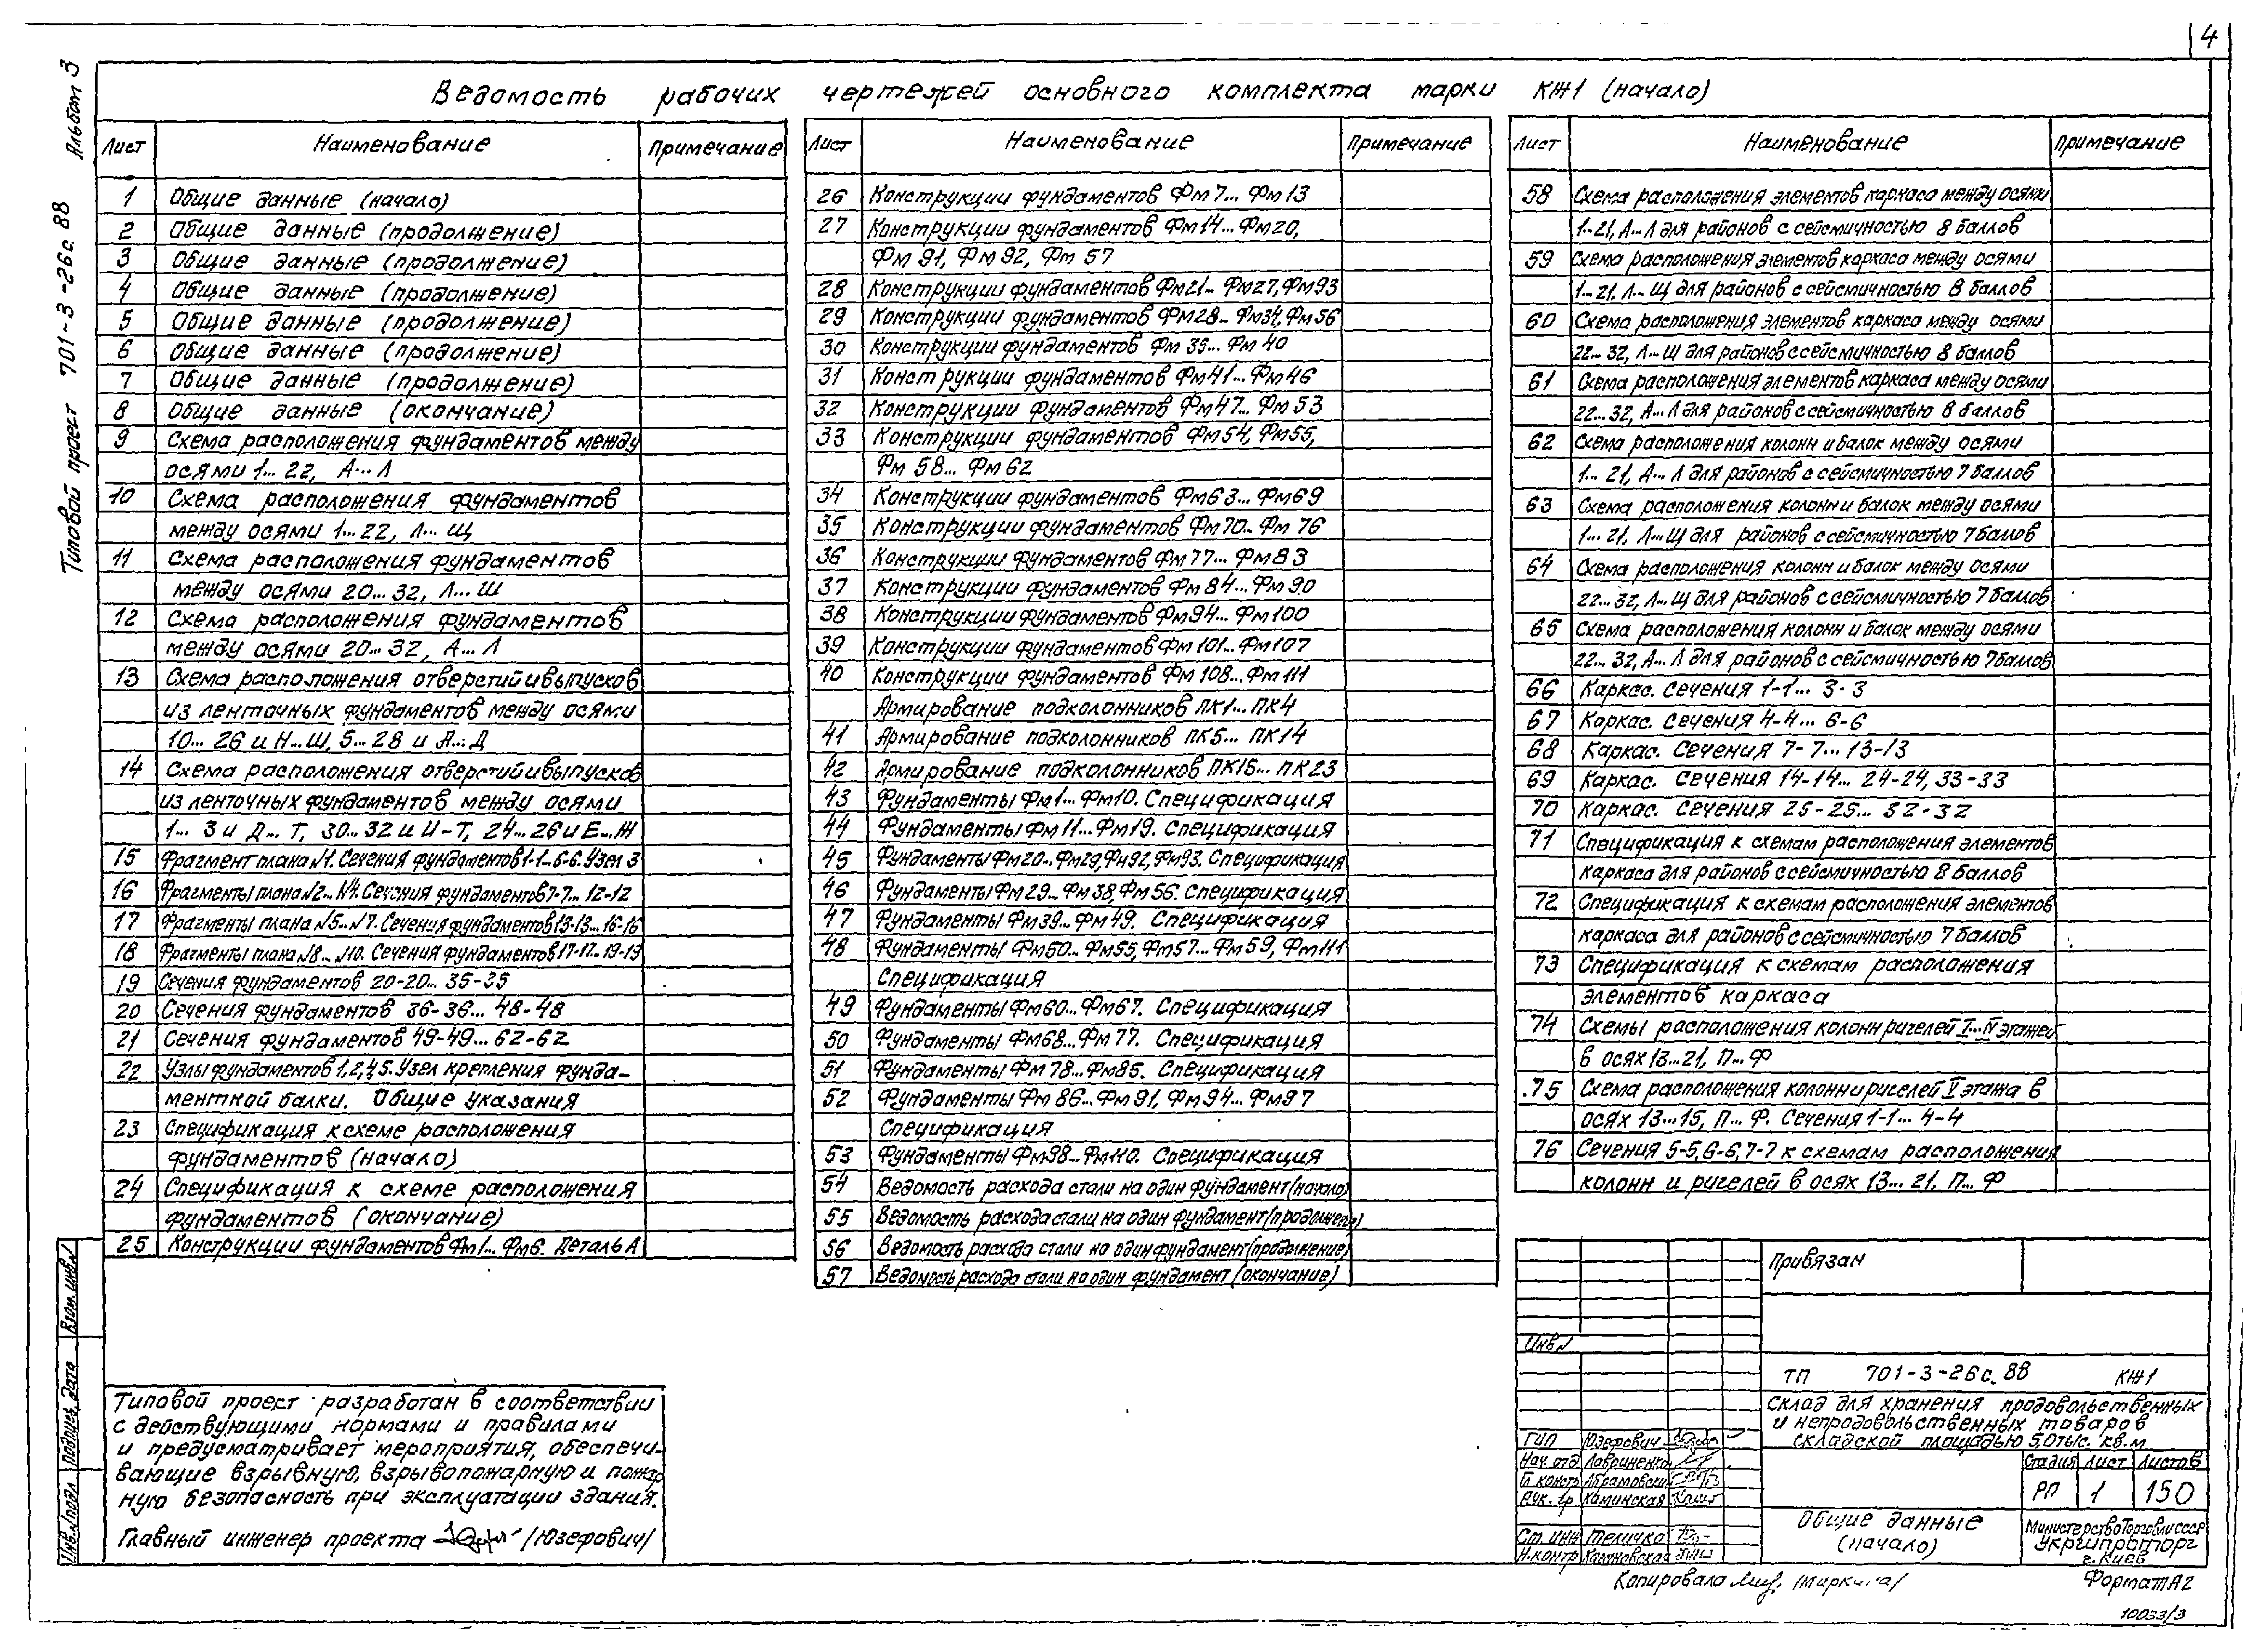 4
Альбом 3
Типовой проект 701-3-26с.88
Ведомость рабочих чертежей основного комплекта марки КЖ1 (начало)
Лист Наименование Примечание
1 Общие данные (начало)
2 Общие данные (продолжение)
3 Общие данные (продолжение)
4 Общие данные (продолжение)
5 Общие данные (продолжение)
6 Общие данные (продолжение)
7 Общие данные (продолжение)
8 Общие данные (окончание)
9 Схема расположения фундаментов между
осями 1...22, А...Л
10 Схема расположения фундаментов
между осями 1...22, Л...Щ
11 Схема расположения фундаментов
между осями 20...32, Л...Ш
12 Схема расположения фундаментов
между осями 20...32, А...Л
13 Схема расположения отверстий и выпусков
из ленточных фундаментов между осями
10...26 и Н...Ш, 5...28 и А...Д
14 Схема расположения отверстий и выпусков
из ленточных фундаментов между осями
1...3 и Д...Т, 30...32 и И-Т, 24...26 и Е...Ж
15 Фрагмент плана №1. Сечения фундаментов 1-1...6-6. Узел 3
16 Фрагменты плана №2...№4. Сечения фундаментов 7-7...12-12
17 Фрагменты плана №5...№7. Сечения фундаментов 13-13...16-16
18 Фрагменты плана №8...№10. Сечения фундаментов 17-17...19-19
19 Сечения фундаментов 20-20...35-35
20 Сечения фундаментов 36-36...48-48
21 Сечения фундаментов 49-49...62-62
22 Узлы фундаментов 1,2,4,5. Узел крепления фунда-
ментной балки. Общие указания
23 Спецификация к схеме расположения
фундаментов (начало)
24 Спецификация к схеме расположения
фундаментов (окончание)
25 Конструкции фундаментов Фм1...Фм6. Деталь А
Лист Наименование Примечание
26 Конструкции фундаментов Фм7...Фм13
27 Конструкции фундаментов Фм14...Фм20,
Фм91, Фм92, Фм57
28 Конструкции фундаментов Фм21...Фм27, Фм93
29 Конструкции фундаментов Фм28...Фм34, Фм56
30 Конструкции фундаментов Фм35...Фм40
31 Конструкции фундаментов Фм41...Фм46
32 Конструкции фундаментов Фм47...Фм53
33 Конструкции фундаментов Фм54, Фм55,
Фм58...Фм62
34 Конструкции фундаментов Фм63...Фм69
35 Конструкции фундаментов Фм70...Фм76
36 Конструкции фундаментов Фм77...Фм83
37 Конструкции фундаментов Фм84...Фм90
38 Конструкции фундаментов Фм94...Фм100
39 Конструкции фундаментов Фм101...Фм107
40 Конструкции фундаментов Фм108...Фм111
Армирование подколонников ПК1...ПК4
41 Армирование подколонников ПК5...ПК14
42 Армирование подколонников ПК15...ПК23
43 Фундаменты Фм1...Фм10. Спецификация
44 Фундаменты Фм11...Фм19. Спецификация
45 Фундаменты Фм20...Фм29, Фм92, Фм93. Спецификация
46 Фундаменты Фм29...Фм38, Фм56. Спецификация
47 Фундаменты Фм39...Фм49. Спецификация
48 Фундаменты Фм50...Фм55, Фм57...Фм59, Фм111
Спецификация
49 Фундаменты Фм60...Фм67. Спецификация
50 Фундаменты Фм68...Фм77. Спецификация
51 Фундаменты Фм78...Фм85. Спецификация
52 Фундаменты Фм86...Фм91, Фм94...Фм97
Спецификация
53 Фундаменты Фм98...Фм110. Спецификация
54 Ведомость расхода стали на один фундамент (начало)
55 Ведомость расхода стали на один фундамент (продолжение)
56 Ведомость расхода стали на один фундамент (продолжение)
57 Ведомость расхода стали на один фундамент (окончание)
Лист Наименование Примечание
58 Схема расположения элементов каркаса между осями
1...21, А...Л для районов с сейсмичностью 8 баллов
59 Схема расположения элементов каркаса между осями
1...21, Л...Щ для районов с сейсмичностью 8 баллов
60 Схема расположения элементов каркаса между осями
22...32, Л...Щ для районов с сейсмичностью 8 баллов
61 Схема расположения элементов каркаса между осями
22...32, А...Л для районов с сейсмичностью 8 баллов
62 Схема расположения колонн и балок между осями
1...21, А...Л для районов с сейсмичностью 7 баллов
63 Схема расположения колонн и балок между осями
1...21, Л...Щ для районов с сейсмичностью 7 баллов
64 Схема расположения колонн и балок между осями
22...32, Л...Щ для районов с сейсмичностью 7 баллов
65 Схема расположения колонн и балок между осями
22...32, А...Л для районов с сейсмичностью 7 баллов
66 Каркас. Сечения 1-1...3-3
67 Каркас. Сечения 4-4...6-6
68 Каркас. Сечения 7-7...13-13
69 Каркас. Сечения 14-14...24-24, 33-33
70 Каркас. Сечения 25-25...32-32
71 Спецификация к схемам расположения элементов
каркаса для районов с сейсмичностью 8 баллов
72 Спецификация к схемам расположения элементов
каркаса для районов с сейсмичностью 7 баллов
73 Спецификация к схемам расположения
элементов каркаса
74 Схемы расположения колонн ригелей I...IV этажей
в осях 13...21, П...Ф
75 Схема расположения колонн и ригелей V этажа в
осях 13...15, П...Ф. Сечения 1-1...4-4
76 Сечения 5-5, 6-6, 7-7 к схемам расположения
колонн и ригелей в осях 13...21, П...Ф
Типовой проект разработан в соответствии
с действующими нормами и правилами
и предусматривает мероприятия, обеспечи-
вающие взрывную, взрывопожарную и пожар
ную безопасность при эксплуатации здания.
Главный инженер проекта /Юзефович/
Взам. инв.№
Подпись, дата
Инв.№ подл
Привязан
Инв№
ТП 701-3-26с.88 КЖ1
Склад для хранения продовольственных
и непродовольственных товаров
складской площадью 5,0 тыс. кв.м
ГИП Юзефович
Нач. отд Лавриненко
Гл. констр Абрамовский
Рук. гр Каминская
Ст. инж Теличко
Н. контр Качановская
Стадия Лист Листов
РП 1 150
Общие данные
(начало)
Министерство Торговли СССР
Укргипроторг
г. Киев
Копировала /Миркина/
Формат А2
10033/3